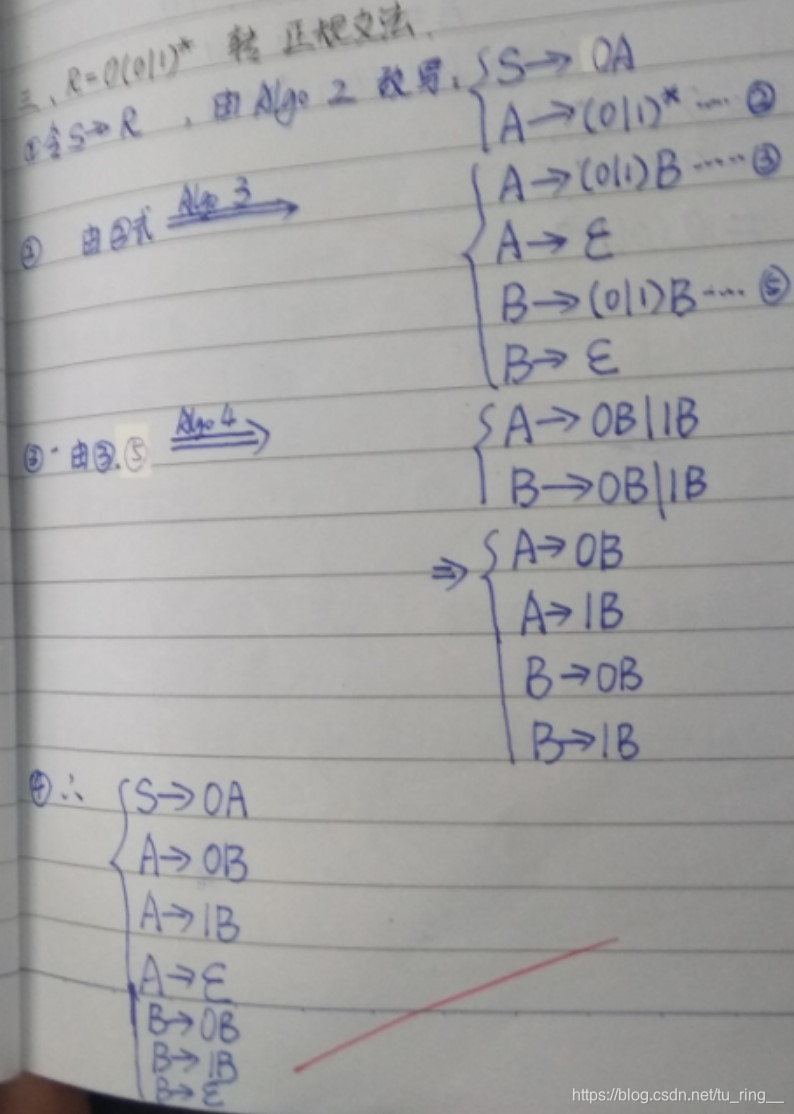 三、R=0(0|1)* 转 正规文法.
①令S→R , 由Algo 2 改写: S→0A
A→(0|1)* ···· ②
A→(0|1)B ····· ③
② 由②式 Algo 3
A→ε
B→(0|1)B ···· ⑤
B→ε
③· 由③.⑤ Algo 4
A→0B|1B
B→0B|1B
⇒ A→0B
A→1B
B→0B
B→1B
④∴ S→0A
A→0B
A→1B
A→ε
B→0B
B→1B
B→ε
https://blog.csdn.net/tu_ring__